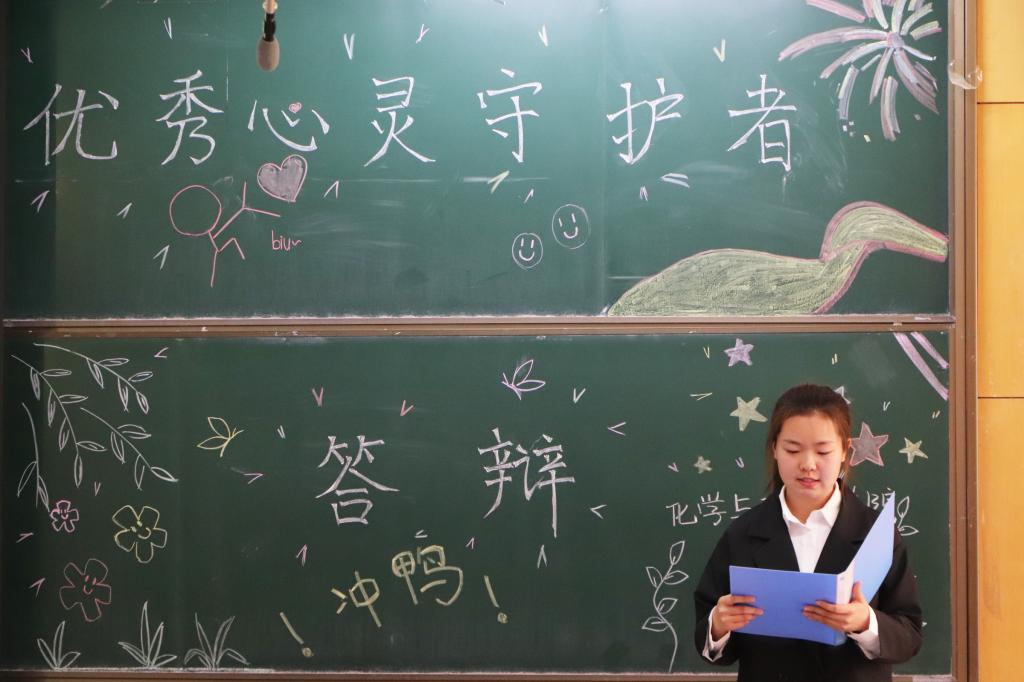 优秀心灵守护者
biu~
答辩
化学与
院
！冲鸭！